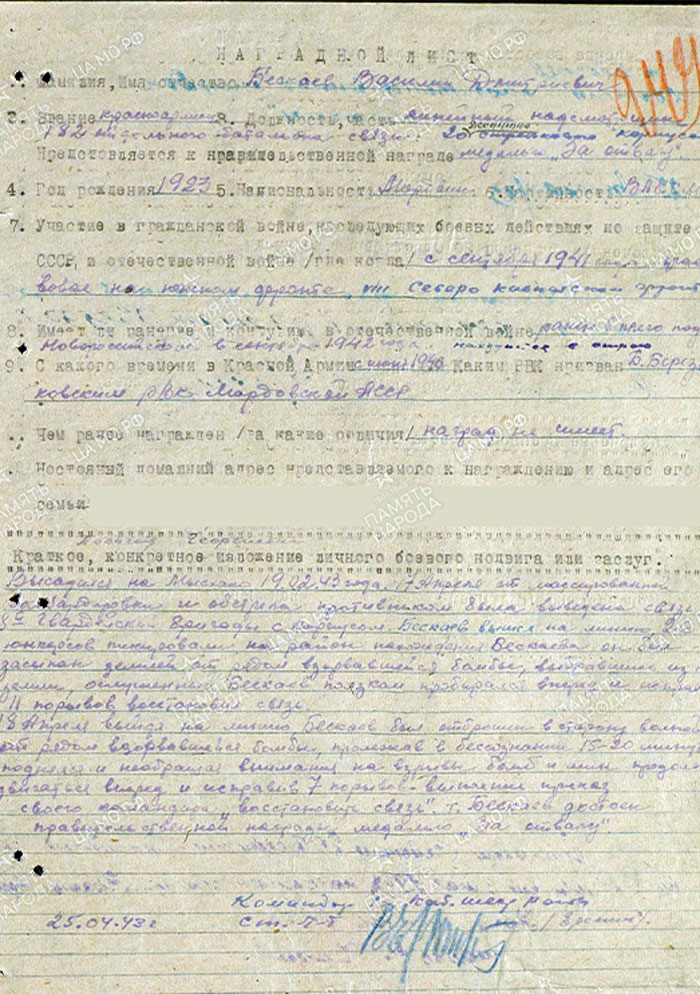 НАГРАДНОЙ ЛИСТ
949
Фамилия, Имя отчество Бескаев Василий Дмитриевич
3. Звание красноармеец 3. Должность, часть линейный надсмотрщик
182 отдельного батальона связи 20 десантного стрелкового корпуса
Представляется к правительственной награде медалью „За отвагу".
4. Год рождения 1923 5. Национальность Мордвин 6. ВЛКСМ
7. Участие в гражданской войне, последующих боевых действиях по защите
СССР, и отечественной войне /где когда/ с сентября 1941 года
на южном фронте, Северо кавказском фронте
8. Имеет ли ранение и контузии в отечественной войне ранен в под
Новороссийском в сентябре 1942 года.
9. С какого времени в Красной Армии с 1940 Каким РВК призван Б. Берез
ковским РВК Мордовской АССР
Чем ранее награжден /за какие отличия/ наград не имеет.
Постоянный домашний адрес представляемого к награждению и адрес его
семьи
Краткое, конкретное изложение личного боевого подвига или заслуг.
Высадился на Мысхако 19.02.43 года. 17 Апреля от массированной
бомбардировки и обстрела противником была выведена связь
8й Гвардейской бригады с корпусом. Бескаев вышел на линию,
юнкерсов пикировали на район нахождения Бескаева, он был
засыпан землей от рядом взорвавшейся бомбы, выбравшись из
земли, оглушенный Бескаев ползком пробирался вперед и исправив
11 порывов восстановил связь.
18 Апреля выйдя на линию Бескаев был отброшен в сторону волной
от рядом взорвавшейся бомбы, пролежав в бессознании 15-20 минут
поднялся и необращая внимания на взрывы бомб и мин продолж
двигаться вперед и исправив 7 порывов - выполнил приказ
своего командира „восстановить связь". т. Бескаев достоен
правительственной награды медалью „За отвагу".
Командир каб. шест роты
25.04.43 г ст. л-т
ЦАМО.РФ
ПАМЯТЬ НАРОДА